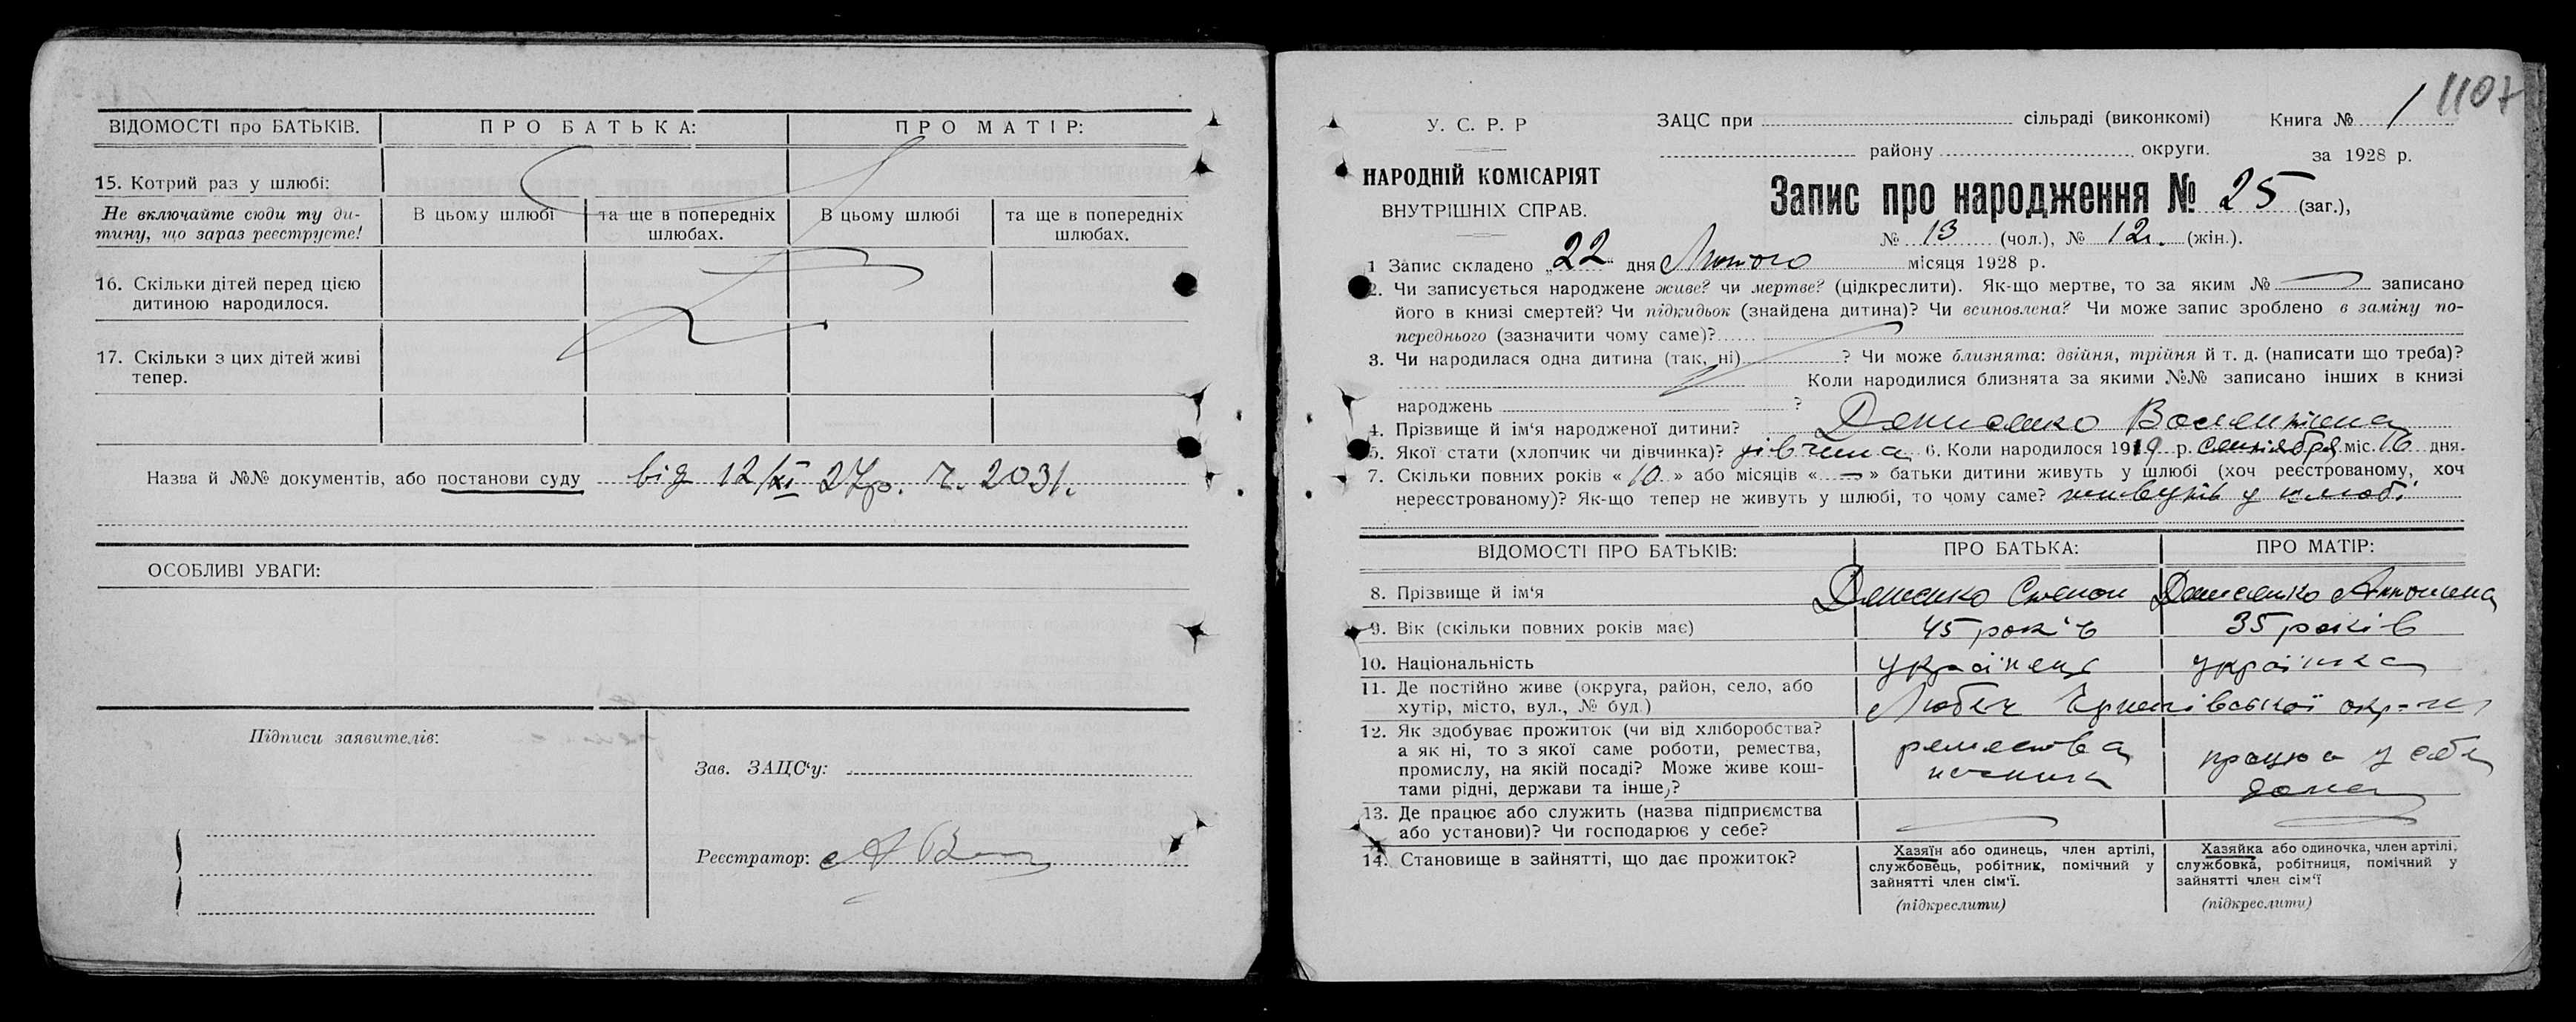 ВІДОМОСТІ про БАТЬКІВ. ПРО БАТЬКА: ПРО МАТІР:
15. Котрий раз у шлюбі:
Не включайте сюди ту ди-
тину, що зараз реєструєте!
В цьому шлюбі
та ще в попередніх
шлюбах.
В цьому шлюбі
та ще в попередніх
шлюбах.
16. Скільки дітей перед цією
дитиною народилося.
17. Скільки з цих дітей живі
тепер.
Назва й №№ документів, або постанови суду від 12/XI 27р. ч. 2031.
ОСОБЛИВІ УВАГИ:
Підписи заявителів:
Зав. ЗАЦС'у:
Реєстратор:
1107
У. С. Р. Р
НАРОДНІЙ КОМІСАРІЯТ
ВНУТРІШНІХ СПРАВ.
ЗАЦС при сільраді (виконкомі) Книга № 1
району округи. за 1928 р.
Запис про народження № 25 (заг.),
№ 13 (чол.), № 12 (жін.).
1 Запис складено „22" дня Лютого місяця 1928 р.
2. Чи записується народжене живе? чи мертве? (цідкреслити). Як-що мертве, то за яким № записано
його в книзі смертей? Чи підкидьок (знайдена дитина)? Чи всиновлена? Чи може запис зроблено в заміну по-
переднього (зазначити чому саме)?
3. Чи народилася одна дитина (так, ні) ? Чи може близнята: двійня, трійня й т. д. (написати що треба)?
Коли народилися близнята за якими №№ записано інших в книзі
народжень ?
4. Прізвище й ім'я народженої дитини? Валентина
5. Якої стати (хлопчик чи дівчинка)? дівчина 6. Коли народилося 1919 р. сентября міс. 16 дня.
7. Скільки повних років « 10 » або місяців « — » батьки дитини живуть у шлюбі (хоч реєстрованому, хоч
нереєстрованому)? Як-що тепер не живуть у шлюбі, то чому саме? живуть у шлюбі
ВІДОМОСТІ ПРО БАТЬКІВ: ПРО БАТЬКА: ПРО МАТІР:
8. Прізвище й ім'я Степан
9. Вік (скільки повних років має) 45 років 35 років
10. Національність українець українка
11. Де постійно живе (округа, район, село, або
хутір, місто, вул., № буд.)
Любеч Чернігівської окр-ги
12. Як здобуває прожиток (чи від хліборобства?
а як ні, то з якої саме роботи, ремества,
промислу, на якій посаді? Може живе кош-
тами рідні, держави та інше)?
ремества
працює у себе
дома
13. Де працює або служить (назва підприємства
або установи)? Чи господарює у себе?
14. Становище в зайнятті, що дає прожиток?
Хазяїн або одинець, член артілі,
службовець, робітник, помічний у
зайнятті член сім'ї.
(підкреслити)
Хазяйка або одиночка, член артілі,
службовка, робітниця, помічний у
зайнятті член сім'ї
(підкреслити)